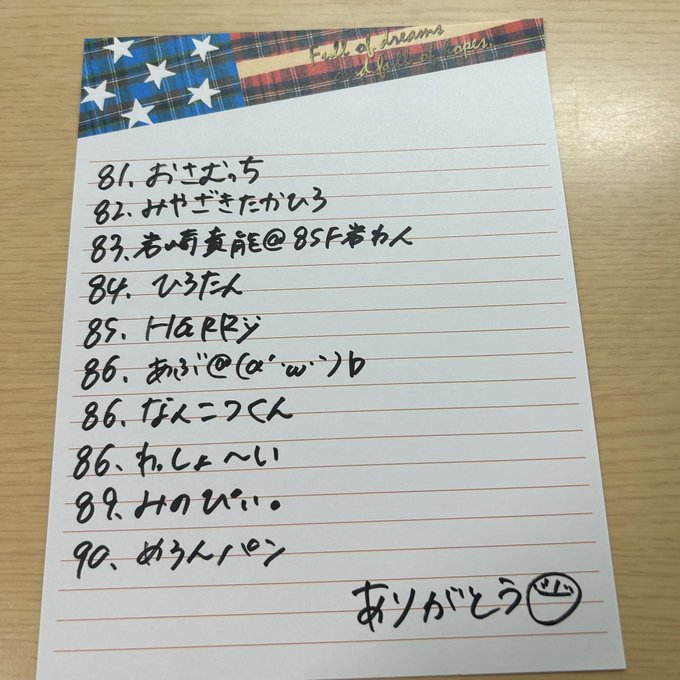 Full of dreams
and full of hopes.
81. おさむっち
82. みやざきたかひろ
83. 岩崎貴能@85F岩わん
84. ひろたん
85. HARRy
86. あぶ@(α'·ω·')b
86. なんこつくん
86. わっしょ〜い
89. みのぴぃ。
90. めろんパン
ありがとう